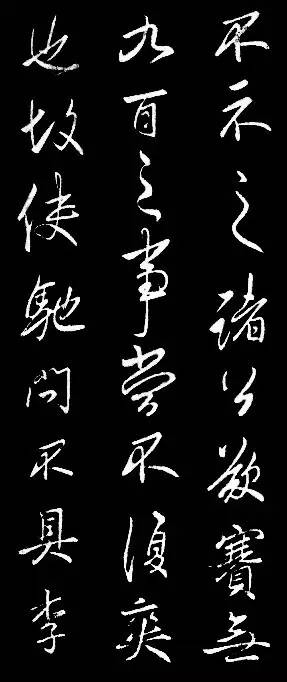 不示之諸公欲賽無
九百之事當不復爽
也故使馳問不具李